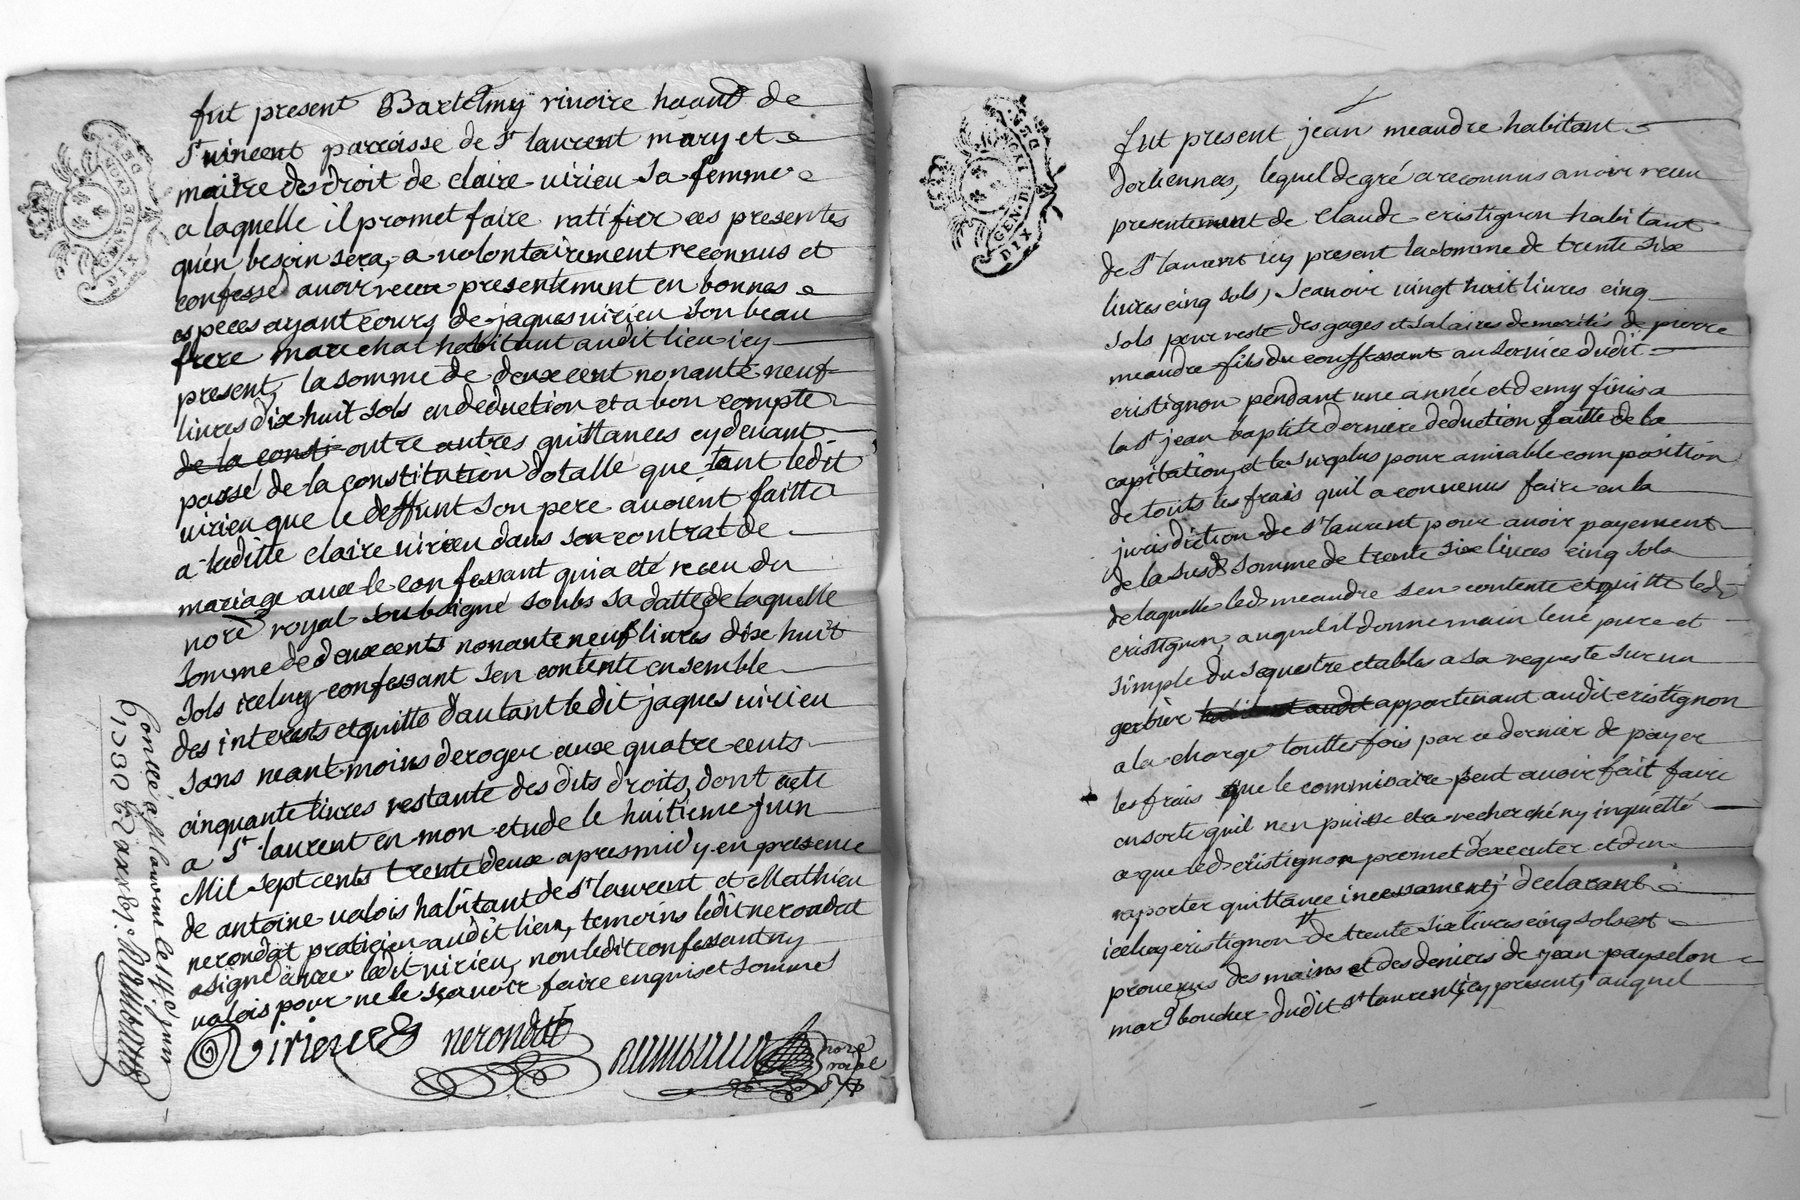 fut present Bartelmy rivoire haant de
St vincent parroisse de St laurent mary et
maitre des droit de claire virieu sa femme
a laquelle il promet faire ratifier ces presentes
quen besoin sera, a volontairement reconnus et
confessed avoir receu presentement en bonnes
especes ayant cours de jaques virieu son beau
frere marechal habitant audit lieu icy
present, la somme de deux cent nonante neuf
livres dix huit sols en deduction et a bon compte
de la consti outre autres quittances cy devant
passé de la constitution dotalle que tant ledit
virieu que le deffunt son pere avoient faitte
a laditte claire virieu dans son contrat de
mariage avec le confessant qui a eté receu du
nore royal soubsigné soubs sa datte, de laquelle
somme de deux cents nonante neuf livres dix huit
sols iceluy confessant sen contente ensemble
des interests et quitte dautant ledit jaques virieu
sans neant moins deroger aux quatre cents
cinquante livres restante des dits droits, dont acte
a St laurent en mon etude le huitieme juin
Mil sept cents trente deux apres midy en presence
de antoine valois habitant de St laurent et Mathieu
nerondat praticien audit lieu, temoins ledit nerondat
a signé avec ledit virieu, non ledit confessant ny
valois pour ne le sçavoir faire enquis et sommes
Virieu nerondat
nore
roial
Controllé a St laurent le 14e juin
DIX DEN
GEN
fut present jean meandre habitant
dorliennas, lequel de gré a reconnus avoir receu
presentement de Claude cristignon habitant
de St laurent icy present la somme de trente six
livres cinq sols, Scavoir vingt huit livres cinq
sols pour reste des gages et salaires demerités de pierre
meandre fils du confessant au service dudit
cristignon pendant une année et demy finis a
la St jean baptiste derniere deduction faitte de la
capitation, et le surplus pour amiable composition
de touts les frais quil a convenus faire en la
jurisdiction de St laurent pour avoir payement
de la susd somme de trente six livres cinq sols
de laquelle led meandre sen contente et quitte led
cristignon, auquel il donne main levé pure et
simple du sequestre etablis a sa requeste sur un
gerbier habitant audit appartenant audit cristignon
a la charge touttes fois par ce dernier de payer
les frais que le commissaire peut avoir fait faire
en sorte quil nen puisse etre recherché ny inquietté
a que led cristignon promet dexecuter et den
raporter quittance incessament, declarant
iceluy cristignon de trente six livres cinq sols est
provenus des mains et des deniers de jean payselon
mard boucher dudit St laurent icy present, auquel
DIX DEN
GEN